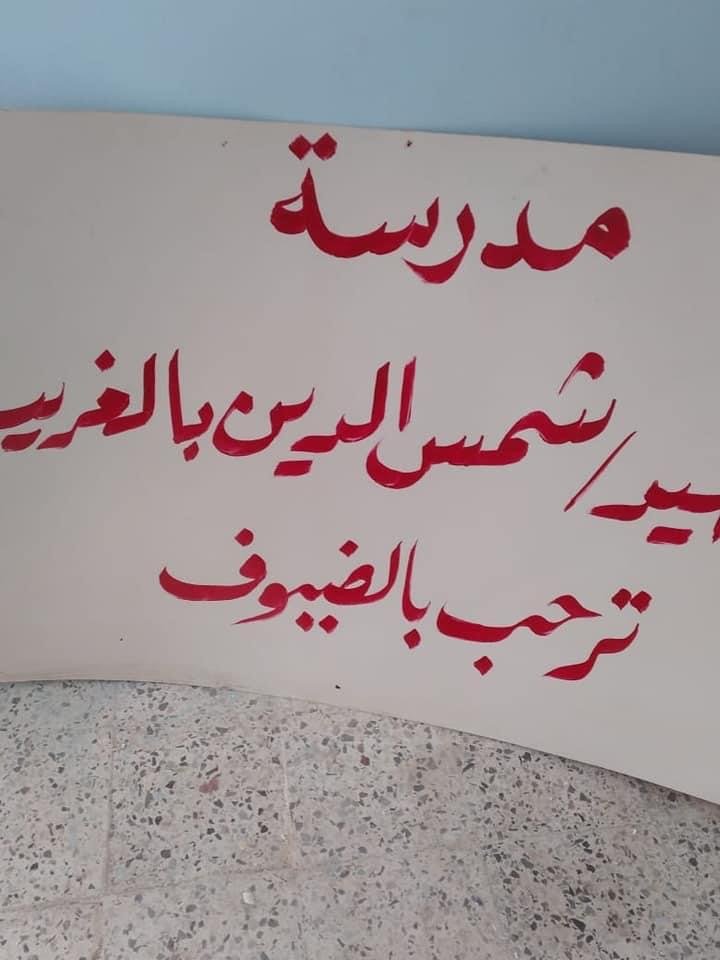 مدرسة
سيد/ شمس الدين بالغريب
ترحب بالضيوف